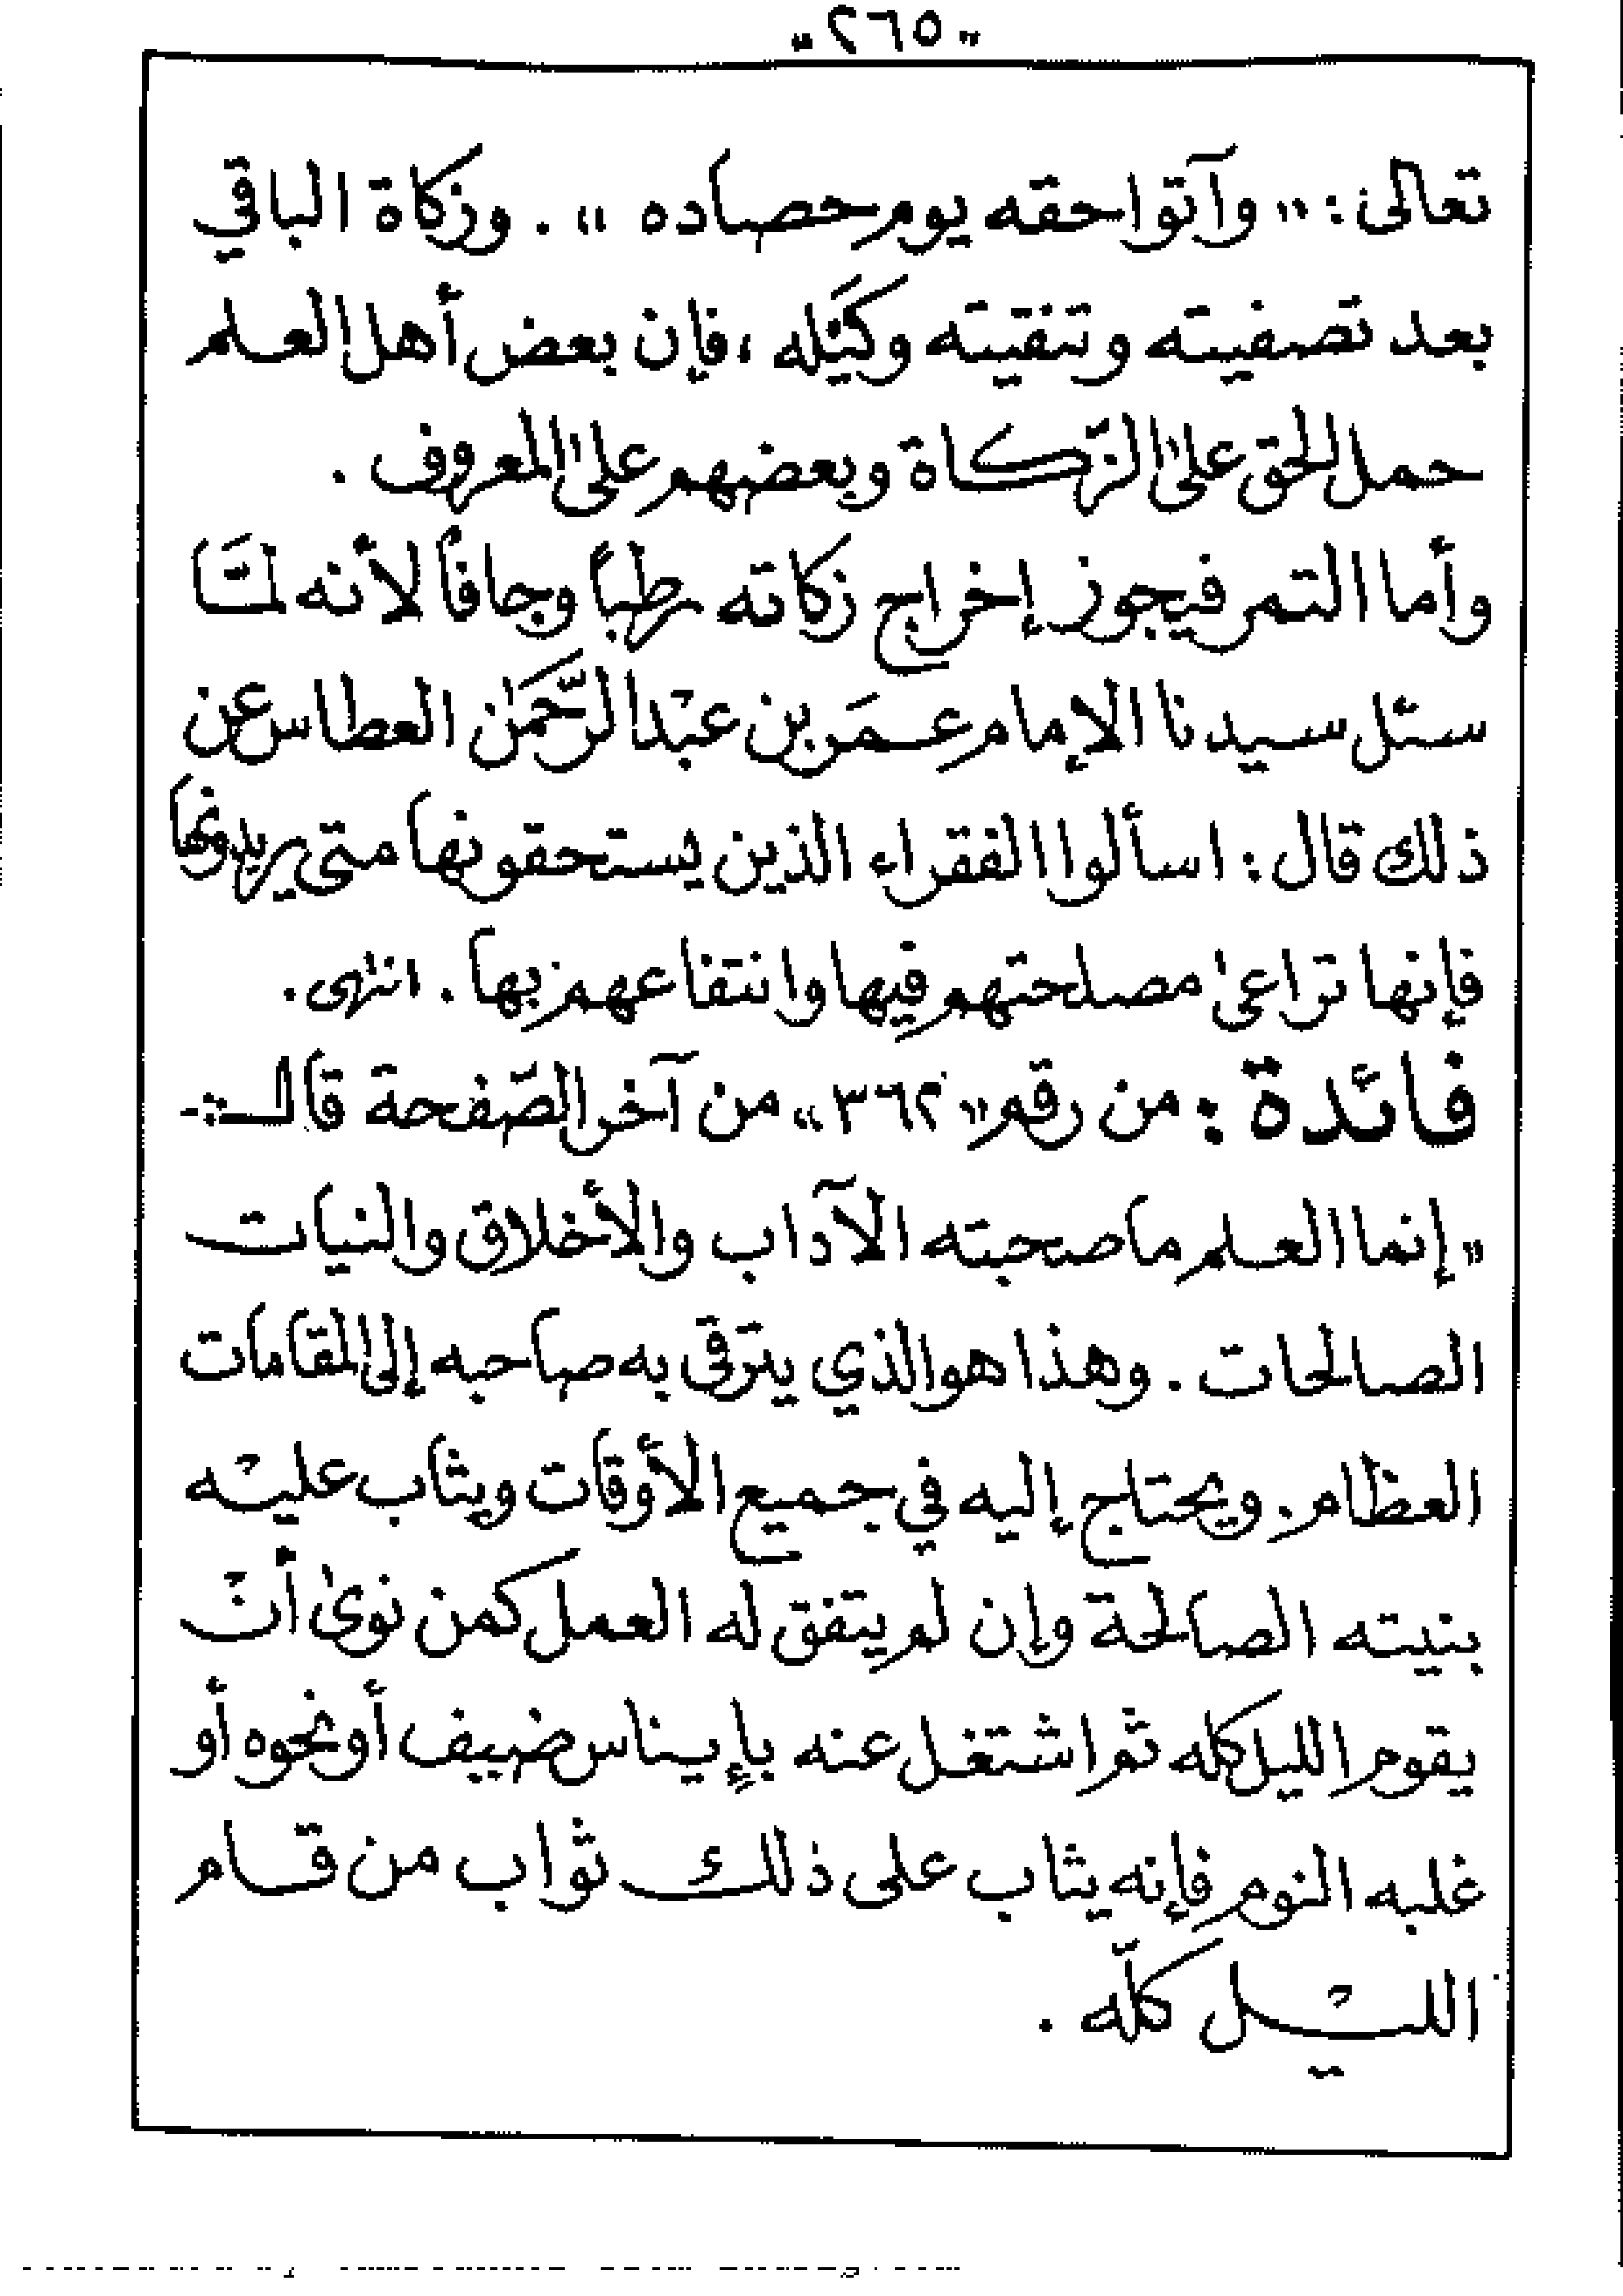 "٢٦٥"
تعالى: "وآتوا حقه يوم حصاده". وزكاة الباقي
بعد تصفيته وتنقيته وكَيْله، فإن بعض أهل العلم
حمل الحق على الزّكاة وبعضهم على المعروف.
وأما التمر فيجوز إخراج زكاته رطباً وجافاً لأنه لمَّا
سئل سيدنا الإمام عمَر بن عبْد الرَّحمَن العطاس عن
ذلك قال: اسألوا الفقراء الذين يستحقونها متى يريدونها
فإنها تراعى مصلحتهم فيها وانتفاعهم بها. انتهى.
فائدة: من رقم "٣٦٢" من آخر الصّفحة قال:-
"إنما العلم ما صحبته الآداب والأخلاق والنيات
الصالحات. وهذا هو الذي يترقى به صاحبه إلى المقامات
العظام. ويحتاج إليه في جميع الأوقات ويثاب عليْه
بنيته الصالحة وإن لم يتفق له العمل كمن نوى أنْ
يقوم الليل كله ثم اشتغل عنه بإيناس ضيف أو نحوه أو
غلبه النوم فإنه يثاب على ذلك ثواب من قام
الليْل كلّه.